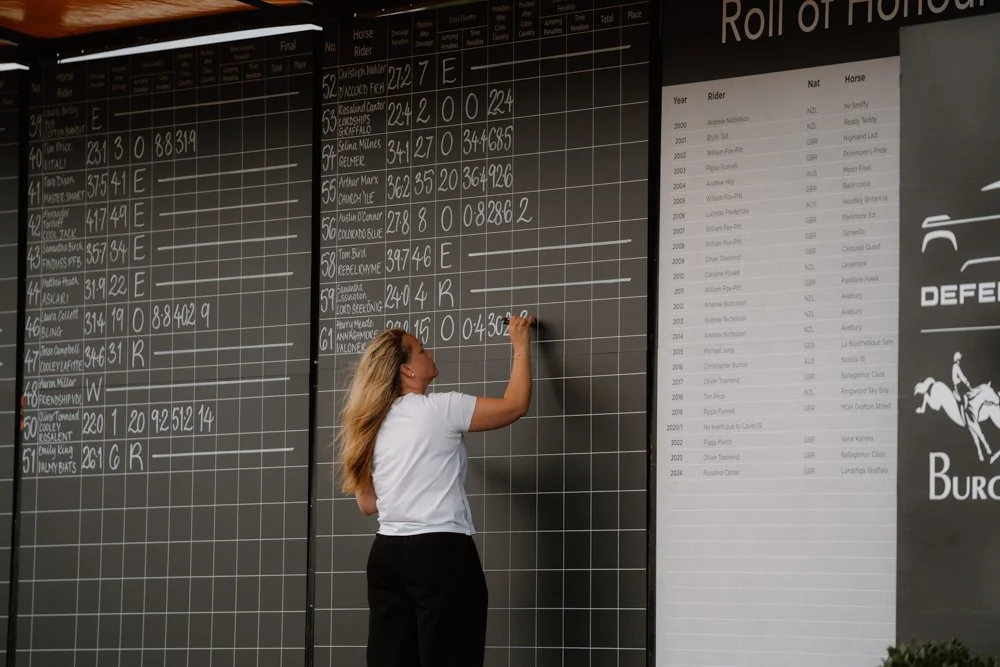 Final
Total Place
Horse
Rider
39
E
40 Tim Price
VITALI 23.1 3 0 8.8 31.9
41 Tom Dixon
MASTER SMART 37.5 41 E
42 Alexander
COOL JACK 41.7 49 E
43 Samantha Birch
FINDUSS PFB 35.7 34 E
44 Matthew Heath
ASKARI 31.9 22 E
46 Laura Collett
BLING 31.4 19 0 8.8 40.2 9
47 Jesse Campbell
COOLEY LAFITTE 34.6 31 R
48 Aaron Miller
FRIENDSHIP VDL W
50 Oliver Townend
COOLEY
ROSALENT 22.0 1 20 9.2 51.2 14
51 Emily King
VALMY BIATS 26.1 6 R
No. Horse
Rider
Cross Country
Total Place
52 Christoph Wahler
D'ACCORD FRH 27.2 7 E
53 Rosalind Canter
LORDSHIPS
GRAFFALO 22.4 2 0 0 22.4
54 Selina Milnes
GELMER 34.1 27 0 34.4 68.5
55 Arthur Marx
CHURCH TILE 36.2 35 20 36.4 92.6
56 Austin O'Connor
COLORADO BLUE 27.8 8 0 0.8 28.6 2
58 Tom Bird
REBEL RHYME 39.7 46 E
59 Samantha
Lissington
LORD SEEKONIG 24.0 4 R
61 Harry Meade
15 0 0.4 30.2
Roll of Honour
Year Rider Nat Horse
2000 Andrew Nicholson NZL Mr Smiffy
2001 Blyth Tait NZL Ready Teddy
2002 William Fox-Pitt GBR Highland Lad
2003 Pippa Funnell GBR Primmore's Pride
2004 Andrew Hoy AUS Moon Fleet
2005 William Fox-Pitt GBR Ballincoola
2006 Lucinda Fredericks AUS Headley Britannia
2007 William Fox-Pitt GBR Parkmore Ed
2008 William Fox-Pitt GBR Tamarillo
2009 Oliver Townend GBR Carousel Quest
2010 Caroline Powell NZL Lenamore
2011 William Fox-Pitt GBR Parklane Hawk
2012 Andrew Nicholson NZL Avebury
2013 Andrew Nicholson NZL Avebury
2014 Andrew Nicholson NZL Avebury
2015 Michael Jung GER La Biosthetique Sam
2016 Christopher Burton AUS Nobilis 18
2017 Oliver Townend GBR Ballaghmor Class
2018 Tim Price NZL Ringwood Sky Boy
2019 Pippa Funnell GBR MGH Grafton Street
2020/1 No event due to Covid-19
2022 Piggy March GBR Vanir Kamira
2023 Oliver Townend GBR Ballaghmor Class
2024 Rosalind Canter GBR Lordships Graffalo
DEFE
BURG